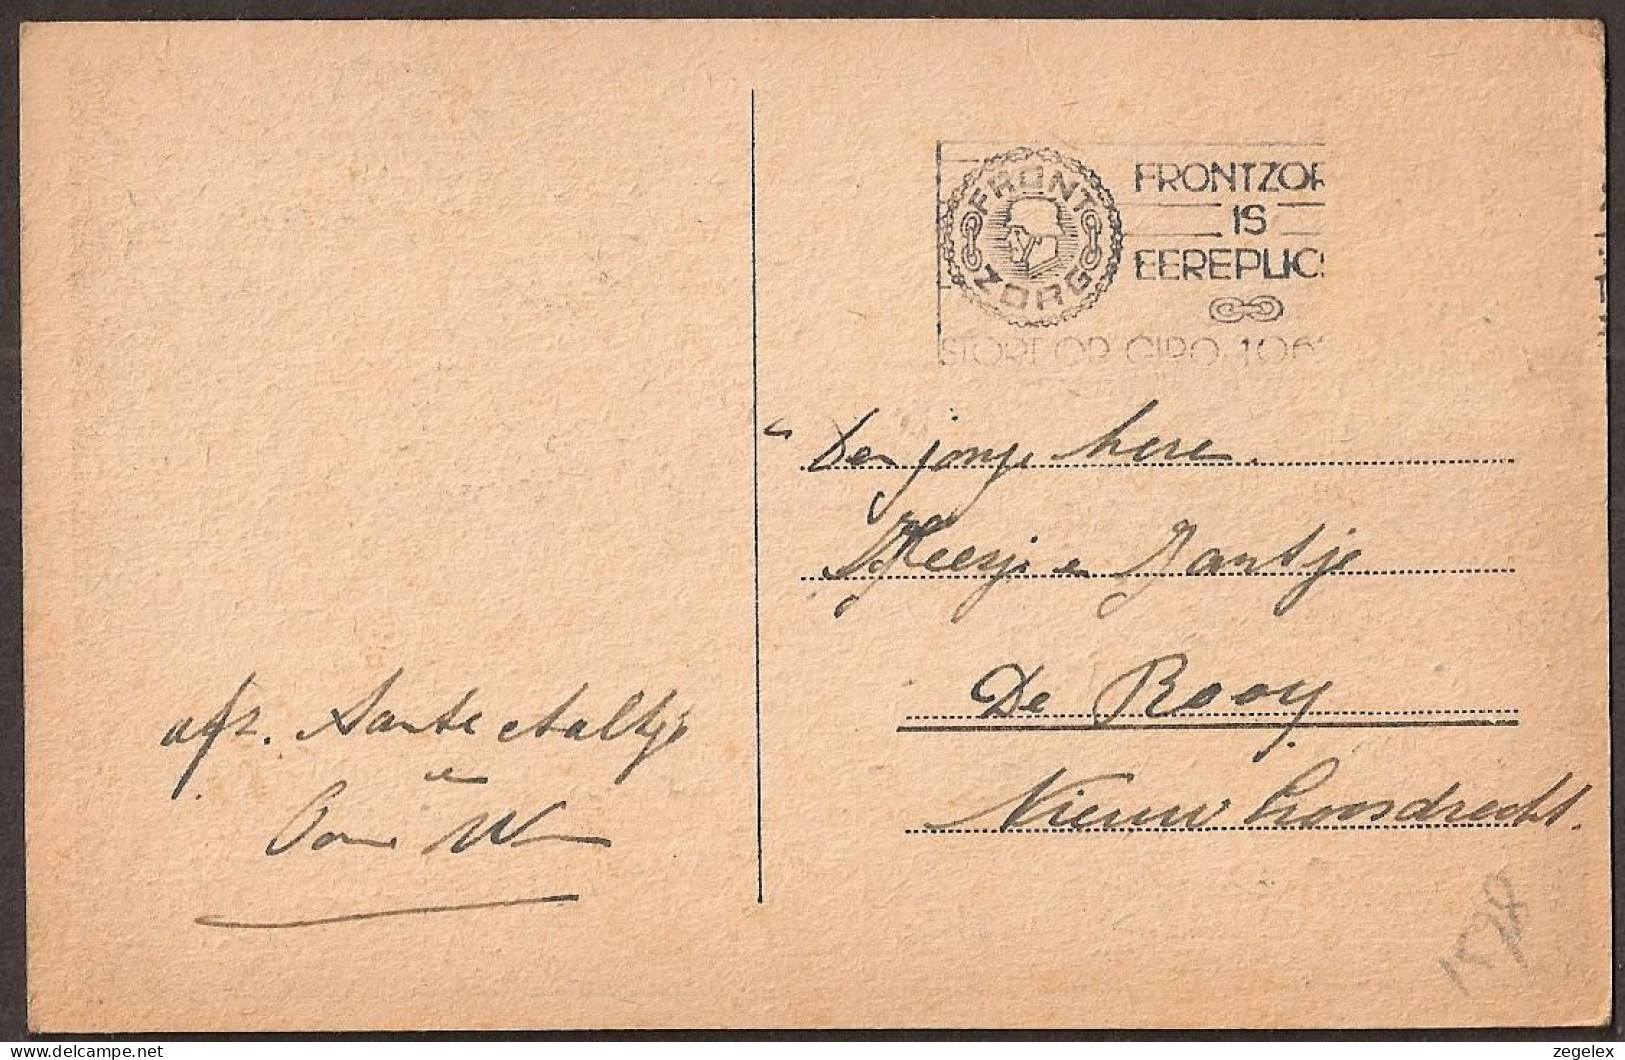 FRONT ZORG
FRONTZOR
IS
EEREPLIC
STORT OP GIRO 106
De jonge here.
Keesje en Jantje
De Rooy
Nieuw Loosdrecht.
afz. Tante Aaltje
en
Oome W
157
zegelex